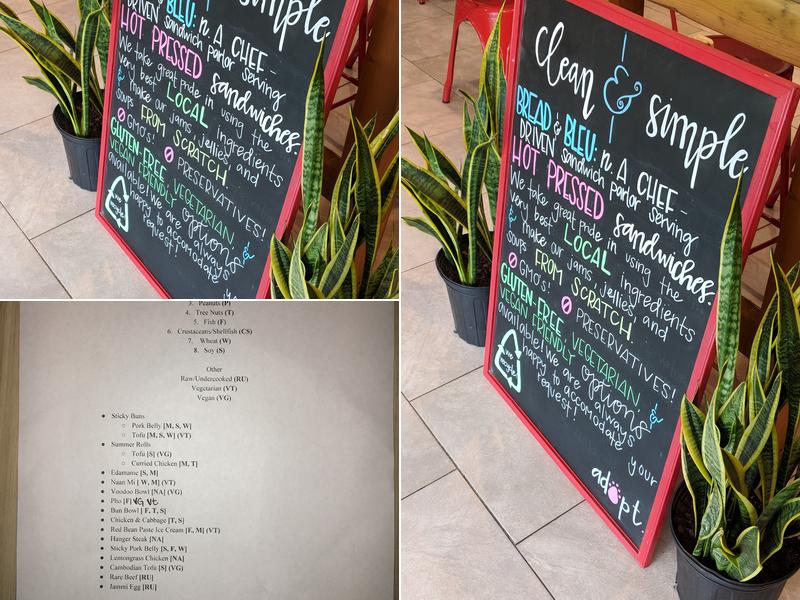 & simple
& BLEU: n. A CHEF-
DRIVEN sandwich parlor serving
HOT PRESSED sandwiches.
We take great pride in using the
very best LOCAL ingredients
& make our jams, jellies and
soups FROM SCRATCH.
GMO'S! PRESERVATIVES!
GLUTEN-FREE, VEGETARIAN,
VEGAN FRIENDLY options &
available! We are always
happy to accomodate
request!
we recycle
clean & simple
BREAD & BLEU: n. A CHEF-
DRIVEN sandwich parlor serving
HOT PRESSED sandwiches.
We take great pride in using the
very best LOCAL ingredients
& make our jams, jellies and
soups FROM SCRATCH.
GMO'S! PRESERVATIVES!
GLUTEN-FREE, VEGETARIAN,
VEGAN FRIENDLY options &
available! We are always
happy to accomodate your
request!
we recycle
adopt.
3. Peanuts (P)
4. Tree Nuts (T)
5. Fish (F)
6. Crustaceans/Shellfish (CS)
7. Wheat (W)
8. Soy (S)
Other
Raw/Undercooked (RU)
Vegetarian (VT)
Vegan (VG)
Sticky Buns
Pork Belly [M, S, W]
Tofu [M, S, W] (VT)
Summer Rolls
Tofu [S] (VG)
Curried Chicken [M, T]
Edamame [S, M]
Naan Mi [ W, M] (VT)
Voodoo Bowl [NA] (VG)
Pho [F] VG Vt
Bun Bowl [ F, T, S]
Chicken & Cabbage [T, S]
Red Bean Paste Ice Cream [E, M] (VT)
Hanger Steak [NA]
Sticky Pork Belly [S, F, W]
Lemongrass Chicken [NA]
Cambodian Tofu [S] (VG)
Rare Beef [RU]
Jammi Egg [RU]